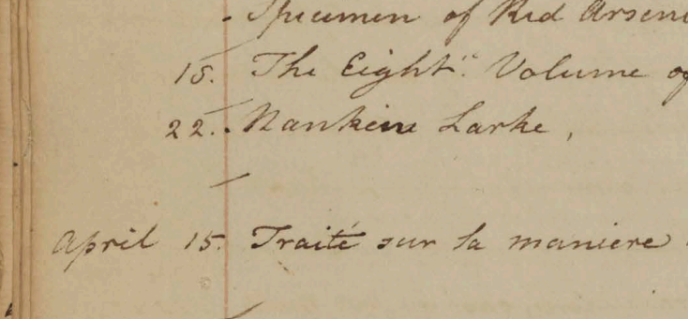 - Specimen of Red Arseni
15. The Eight.h Volume of
22. Nankeen Larke,
April 15. Traité sur la maniere